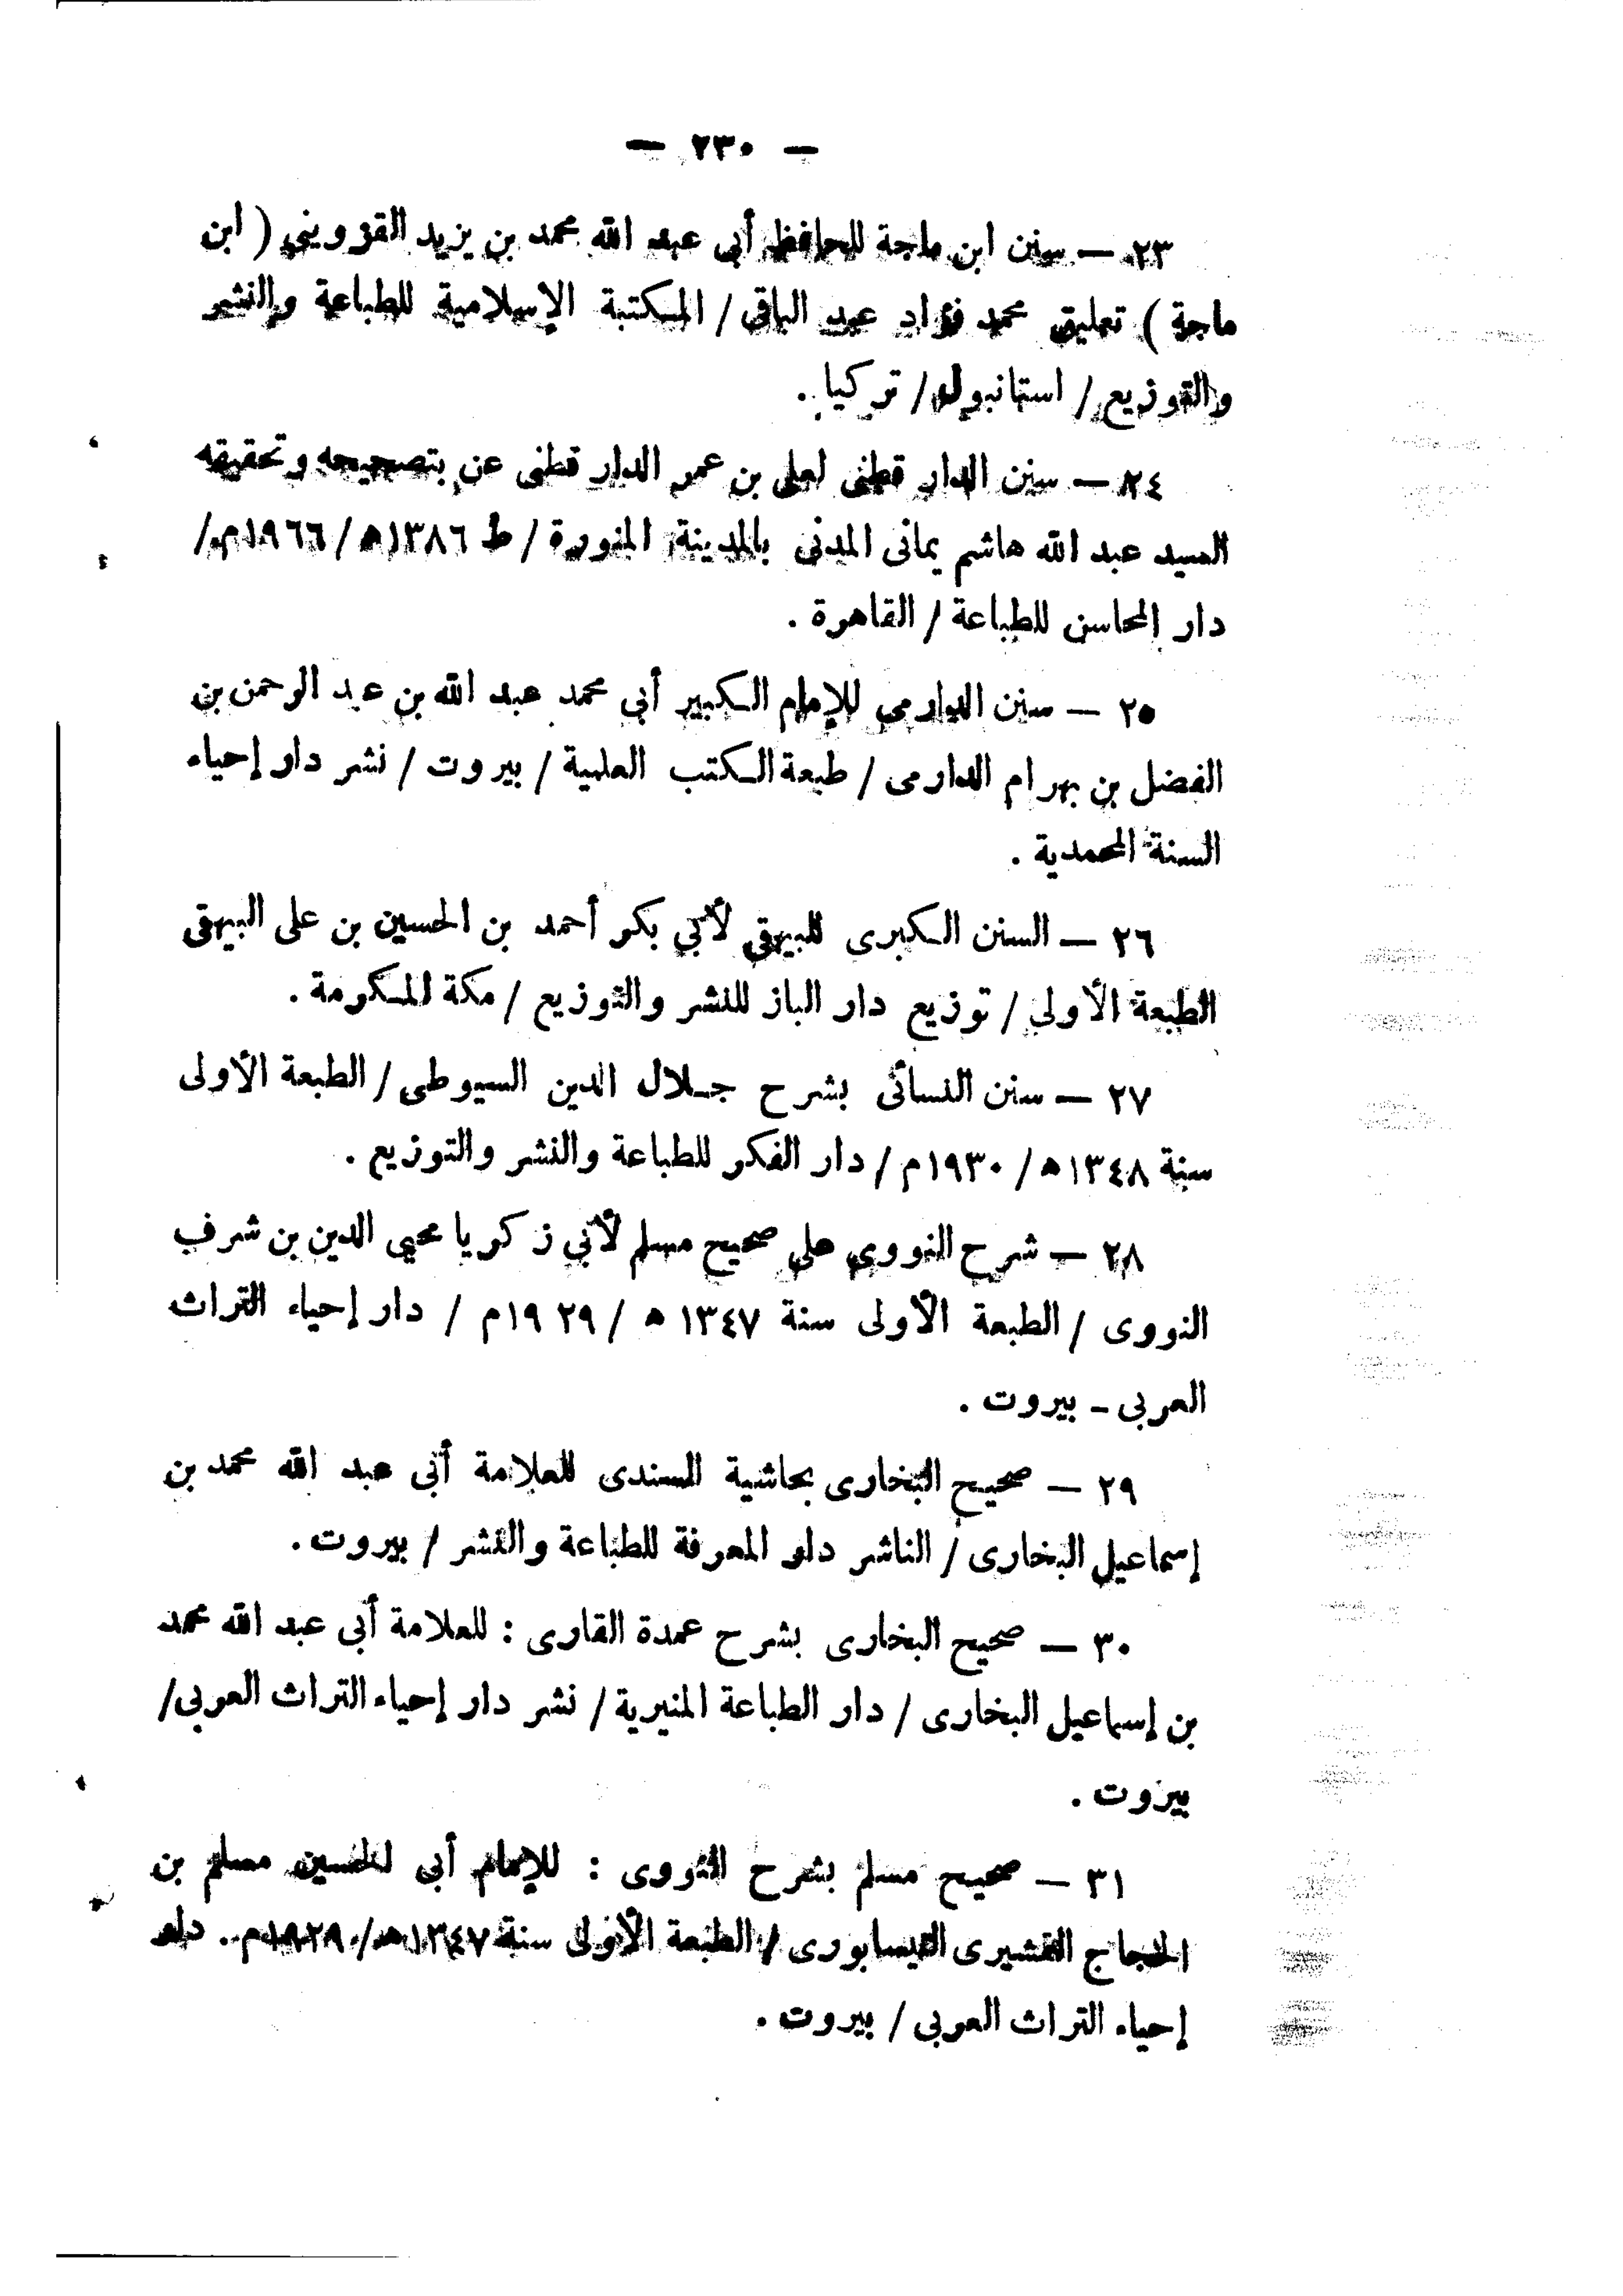 — ٢٣٠ —
٢٣ — سنن ابن ماجة للحافظ أبي عبد الله محمد بن يزيد القزويني ( ابن
ماجة ) تعليق محمد فؤاد عبد الباقى / المكتبة الإسلامية للطباعة والنشر
والتوزيع / استانبول / تركيا .
٢٤ — سنن الدار قطنى لعلى بن عمر الدار قطنى عن بتصحيحه وتحقيقه
السيد عبد الله هاشم يمانى المدنى بالمدينة المنورة / ط ١٣٨٦ه / ١٩٦٦م /
دار المحاسن للطباعة / القاهرة .
٢٥ — سنن الدارمى للإمام الكبير أبي محمد عبد الله بن عبد الرحمن بن
الفضل بن بهرام الدارمى / طبعة الكتب العلمية / بيروت / نشر دار إحياء
السنة المحمدية .
٢٦ — السنن الكبرى للبيهقى لأبي بكر أحمد بن الحسين بن على البيهقى
الطبعة الأولى / توزيع دار الباز للنشر والتوزيع / مكة المكرمة .
٢٧ — سنن النسائى بشرح جلال الدين السيوطى / الطبعة الأولى
سنة ١٣٤٨ه / ١٩٣٠م / دار الفكر للطباعة والنشر والتوزيع .
٢٨ — شرح النووى على صحيح مسلم لأبي زكريا محيى الدين بن شرف
النووى / الطبعة الأولى سنة ١٣٤٧ ه / ١٩٢٩م / دار إحياء التراث
العربى - بيروت .
٢٩ — صحيح البخارى بحاشية السندى للعلامة أبى عبد الله محمد بن
إسماعيل البخارى / الناشر دار المعرفة للطباعة والنشر / بيروت .
٣٠ — صحيح البخارى بشرح عمدة القارى : للعلامة أبى عبد الله محمد
بن إسماعيل البخارى / دار الطباعة المنيرية / نشر دار إحياء التراث العربى /
بيروت .
٣١ — صحيح مسلم بشرح النووى : للإمام أبى الحسين مسلم بن
الحجاج القشيرى النيسابورى / الطبعة الأولى سنة ١٣٤٧ه / ١٩٢٩م . دار
إحياء التراث العربى / بيروت .